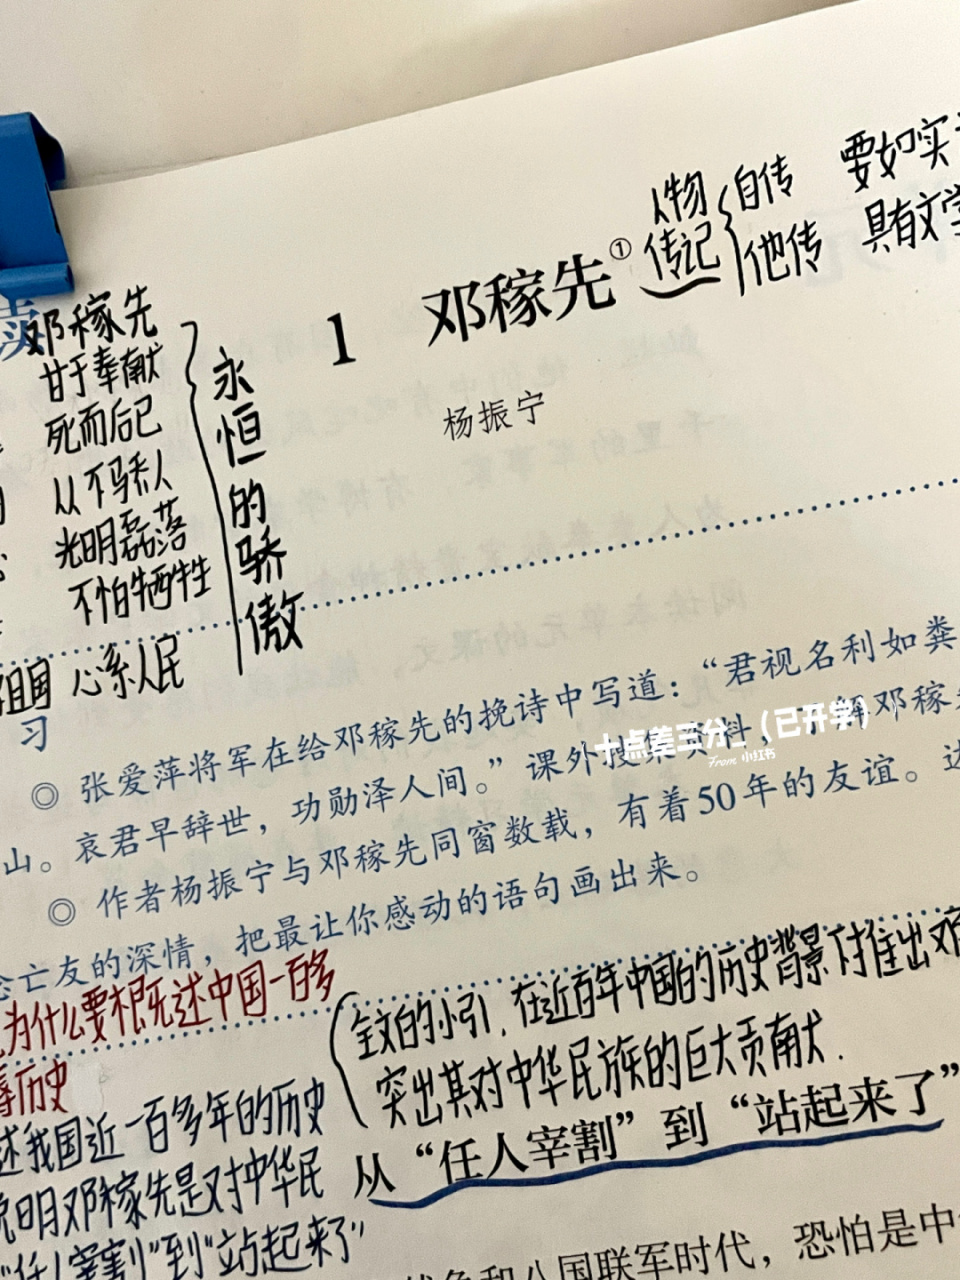 要如实
人物
传记
自传
他传
具有文学
1 邓稼先①
杨振宁
邓稼先
甘于奉献
死而后已
从不骄人
光明磊落
不怕牺牲
祖国 心系人民
永恒的骄傲
习
◎ 张爱萍将军在给邓稼先的挽诗中写道：“君视名利如粪
山。哀君早辞世，功勋泽人间。”课外搜集资料，了解邓稼
◎ 作者杨振宁与邓稼先同窗数载，有着50年的友谊。
念亡友的深情，把最让你感动的语句画出来。
十点差三分_（已开学）
From 小红书
为什么要概述中国一百多
辱历史
述我国近一百多年的历史
说明邓稼先是对中华民
“任人宰割”到“站起来了”
全文的小引，在近百年中国的历史背景下推出邓
突出其对中华民族的巨大贡献.
从“任人宰割”到“站起来了”
战争和八国联军时代，恐怕是中